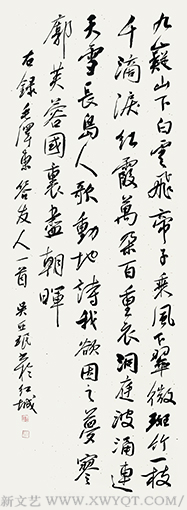 九嶷山下白雲飛帝子乘風下翠微斑竹一枝
千滴淚紅霞萬朵百重衣洞庭波涌連
天雪長島人歌動地詩我欲因之夢寥
廓芙蓉國裏盡朝暉
右錄毛澤東答友人一首 吳 於紅城
新文艺(WWW.XWYQT.COM)